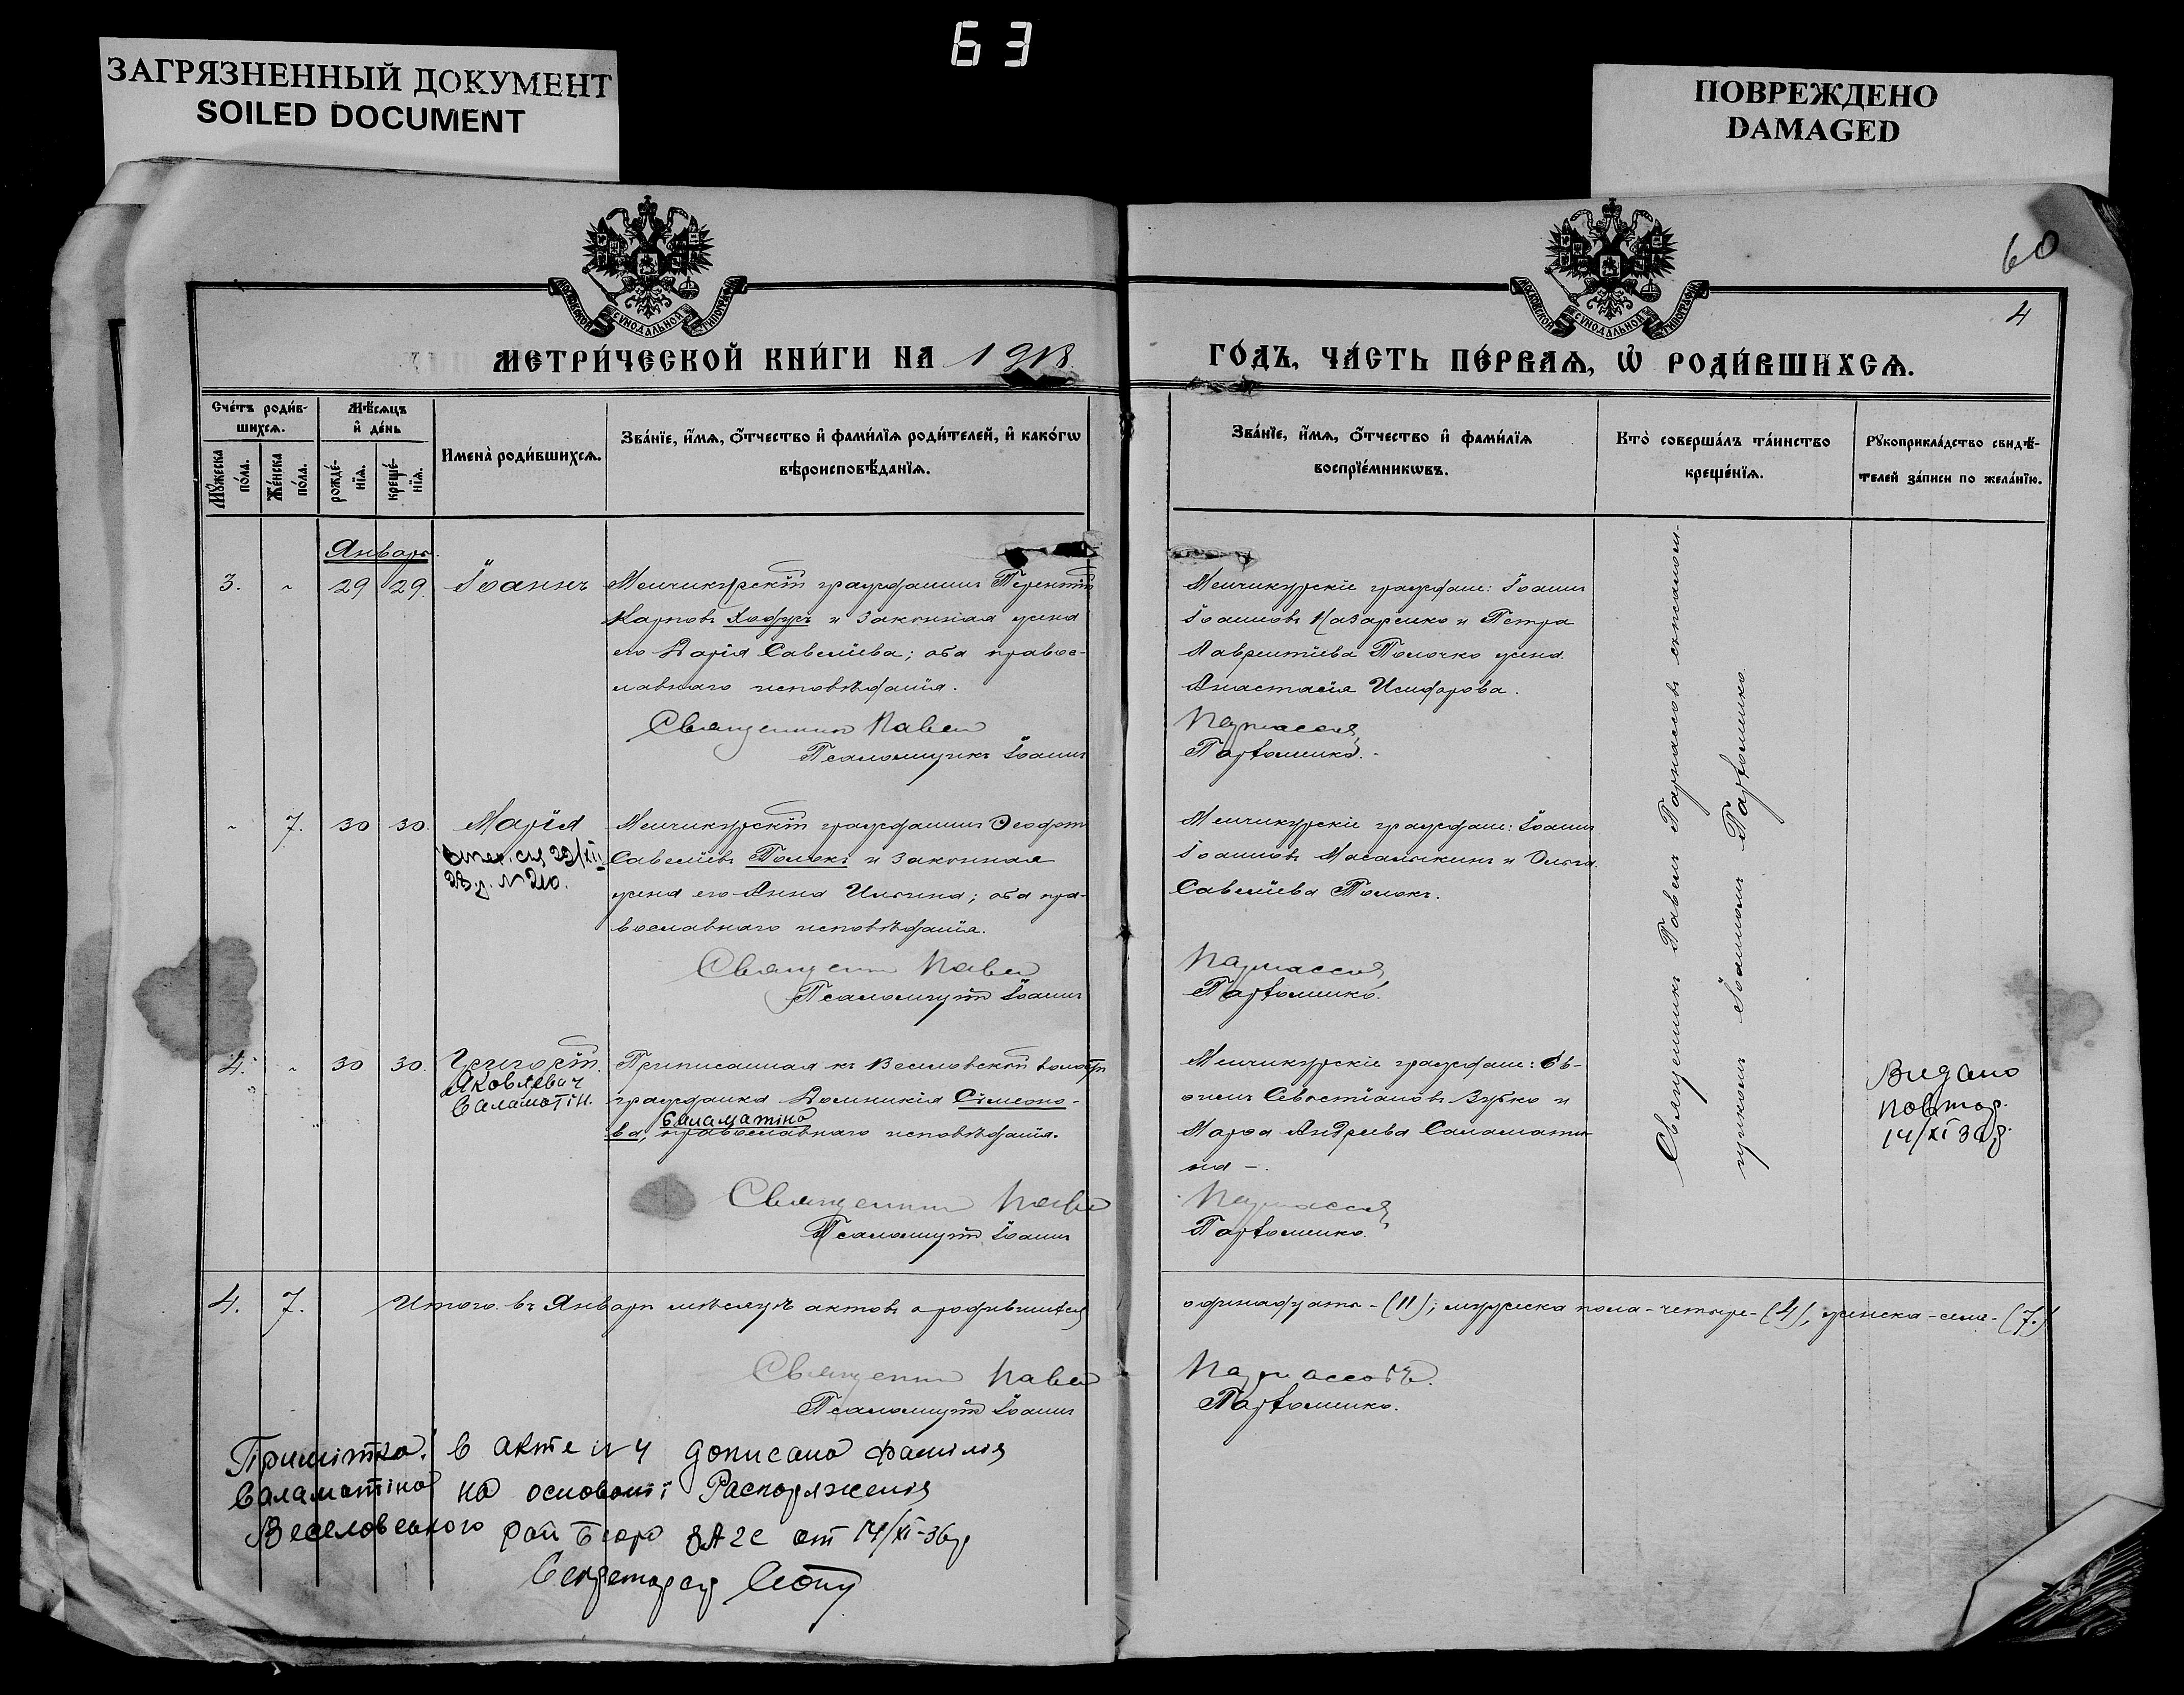 63
ЗАГРЯЗНЕННЫЙ ДОКУМЕНТ
SOILED DOCUMENT
ПОВРЕЖДЕНО
DAMAGED
60
4
МОСКОВСКОЙ СѴНОДАЛЬНОЙ ТИПОГРАФІИ
МОСКОВСКОЙ СѴНОДАЛЬНОЙ ТИПОГРАФІИ
МЕТРИ́ЧЕСКОЙ КНИ́ГИ НА 1918
ГО́ДЪ, ЧА́СТЬ ПЕ́РВАѦ, Ѡ҆ РОДИ́ВШИХСѦ.
Сче́тъ роди́в-
шихсѧ.
Мꙋ́жеска по́ла.
Же́нска по́ла.
Мѣ́сѧцъ
и҆ де́нь
рожде́-
нїѧ.
креще́-
нїѧ.
Имена̀ роди́вшихсѧ.
Зва́нїе, и҆́мѧ, ѻ҆́тчество и҆ фами́лїѧ роди́телей, и҆ како́гѡ
вѣроисповѣ́данїѧ.
Зва́нїе, и҆́мѧ, ѻ҆́тчество и҆ фами́лїѧ
воспрїе́мникѡвъ.
Кто̀ соверша́лъ та́инство
креще́нїѧ.
Рꙋкоприкла́дство свидѣ́-
телей за́писи по жела́нїю.
Январь.
3. - 29 29. Іоаннъ
Менчикурскій гражданинъ Терентій
Карповъ Ходусъ и законная жена
его Дарія Савеліева; оба правос-
лавнаго исповѣданія.
Священникъ Павел
Псаломщикъ Іоаннъ
Менчикурскіе граждане: Іоаннъ
Іоанновъ Назаренко и Петра
Лаврентіева Толочко жена
Анастасія Исидорова.
Парнассов
Пархоменко.
- 7. 30 30. Марія
Менчикурскій гражданинъ Ѳеофан
Савеліевъ Толокъ и законная
жена его Анна Ильина; оба пра-
вославнаго исповѣданія.
Священник Павел
Псаломщикъ Іоаннъ
Менчикурскіе граждане: Іоаннъ
Іоанновъ Масалыкинъ и Ольга
Савеліева Толокъ.
Парнассов
Пархоменко.
4. - 30 30. Григорій.
Яковлевич
Саламатін.
Приписанная къ Веселовской волости
гражданка Домникія Симеоно-
ва, Саламатіна православнаго исповѣданія.
Священник Павел
Псаломщикъ Іоаннъ
Менчикурскіе граждане: Ев-
ѳимъ Севостіановъ Зубко и
Марѳа Андреева Саламати-
на -.
Парнассов
Пархоменко.
Священникъ Павелъ Парнассовъ съ псалом-
щикомъ Іоанномъ Пархоменко.
Видано
повтор.
14/XI 36р.
4. 7. Итого въ Январѣ мѣсяцѣ актовъ о родившихся
одинадцать - (11); мужеска пола - четыре - (4), женска - семь - (7.)
Священник Павел
Псаломщикъ Іоаннъ
Парнассовъ.
Пархоменко.
Примітка: в акте № 4 дописана фамілія
Саламатіна на основанії Распоряженія
Веселовського рай Бюро ЗАГС от 14/XI-36р
Секретарь